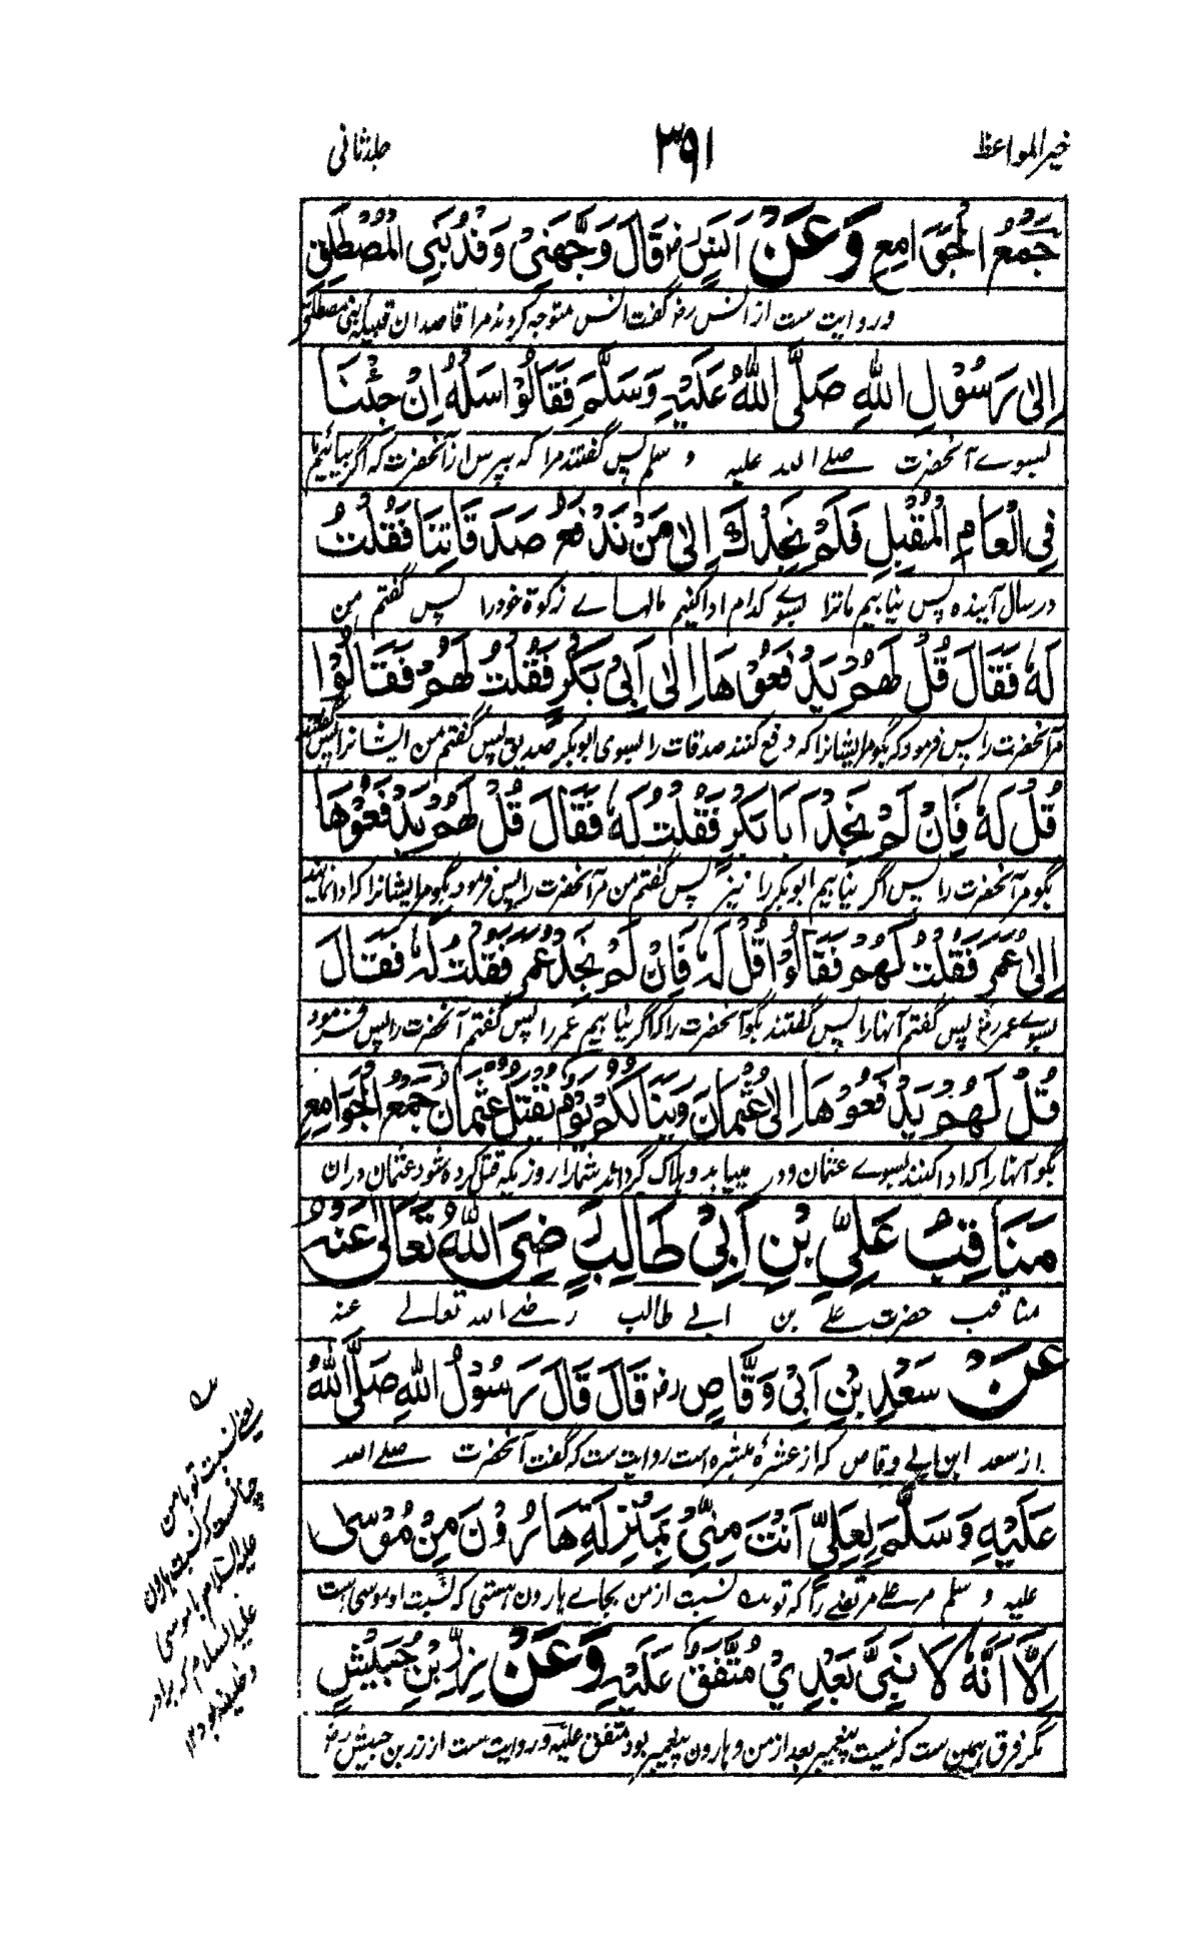 خیر المواعظ ۳۹۱ جلد ثانی
جَمْعُ الْجَوَامِعِ وَعَنْ اَنَسٍ رض قَالَ وَجَّهَنِيْ وَفْدُ بَنِي الْمُصْطَلِقِ
و روایت ست از انس رض گفت انس متوجه کردند مرا قاصدان قبیله بنی مصطلق
اِلٰى رَسُوْلِ اللهِ صَلَّى اللهُ عَلَيْهِ وَسَلَّمَ فَقَالُوْا سَلْهُ اِنْ جِئْنَا
بسوے آنحضرت صلے الله علیه و سلم پس گفتند مرا که بپرس از آنحضرت که اگر بیائیم ما
فِي الْعَامِ الْمُقْبِلِ فَلَمْ نَجِدْكَ اِلٰى مَنْ نَدْفَعُ صَدَقَاتِنَا فَقُلْتُ
در سال آینده پس نیابیم ما ترا بسوے کدام ادا کنیم مالهاے زکوة خود را پس گفتم من
لَهٗ فَقَالَ قُلْ لَهُمْ يَدْفَعُوْهَا اِلٰى اَبِيْ بَكْرٍ فَقُلْتُ لَهُمْ فَقَالُوْا
مر آنحضرت را پس فرمود که بگو مر ایشانرا که دفع کنند صدقات را بسوی ابو بکر صدیق پس گفتم من ایشانرا پس گفتند
قُلْ لَهٗ فَاِنْ لَمْ نَجِدْ اَبَا بَكْرٍ فَقُلْتُ لَهٗ فَقَالَ قُلْ لَهُمْ يَدْفَعُوْهَا
بگو مر آنحضرت را پس اگر نیابیم ابو بکر را نیز پس گفتم من مر آنحضرت را پس فرمود بگو مر ایشانرا که ادا نمایند
اِلٰى عُمَرَ فَقُلْتُ لَهُمْ فَقَالُوْا قُلْ لَهٗ فَاِنْ لَمْ نَجِدْ عُمَرَ فَقُلْتُ لَهٗ فَقَالَ
بسوے عمر رض پس گفتم آنها را پس گفتند بگو آنحضرت را که اگر نیابیم عمر را پس گفتم آنحضرت را پس فرمود
قُلْ لَهُمْ يَدْفَعُوْهَا اِلٰى عُثْمَانَ وَتَبًّا لَكُمْ يَوْمَ يُقْتَلُ عُثْمَانُ جَمْعُ الْجَوَامِعِ
بگو آنها را که ادا کنند بسوے عثمان و هلاک گرداند شما را روزیکه قتل کرده شود عثمان دران
مَنَاقِبُ عَلِيِّ بْنِ اَبِيْ طَالِبٍ رَضِيَ اللهُ تَعَالٰى عَنْهُ
مناقب حضرت علے بن ابے طالب رضے الله تعالے عنه
عَنْ سَعْدِ بْنِ اَبِيْ وَقَّاصٍ رض قَالَ قَالَ رَسُوْلُ اللهِ صَلَّى اللهُ
از سعد ابن ابے وقاص که از عشرهٔ مبشره است روایت ست که گفت آنحضرت صلے الله
عَلَيْهِ وَسَلَّمَ لِعَلِيٍّ اَنْتَ مِنِّيْ بِمَنْزِلَةِ هَارُوْنَ مِنْ مُوْسٰى
علیه و سلم مر علے مرتضے را که تو نسبت از من بجاے هارون هستی که نسبت او بموسی است
اِلَّا اَنَّهٗ لَا نَبِيَّ بَعْدِيْ مُتَّفَقٌ عَلَيْهِ وَعَنْ زِرِّ بْنِ حُبَيْشٍ
مگر فرق همین ست که نیست پیغمبر بعد از من و هارون پیغمبر بود متفق علیه و روایت ست از زر بن حبیش رض
یعنے نسبت تو با من
چنانست که نسبت هارون
علیه السلام با موسی
علیه السلام که برادر
و خلیفه بود ۱۲